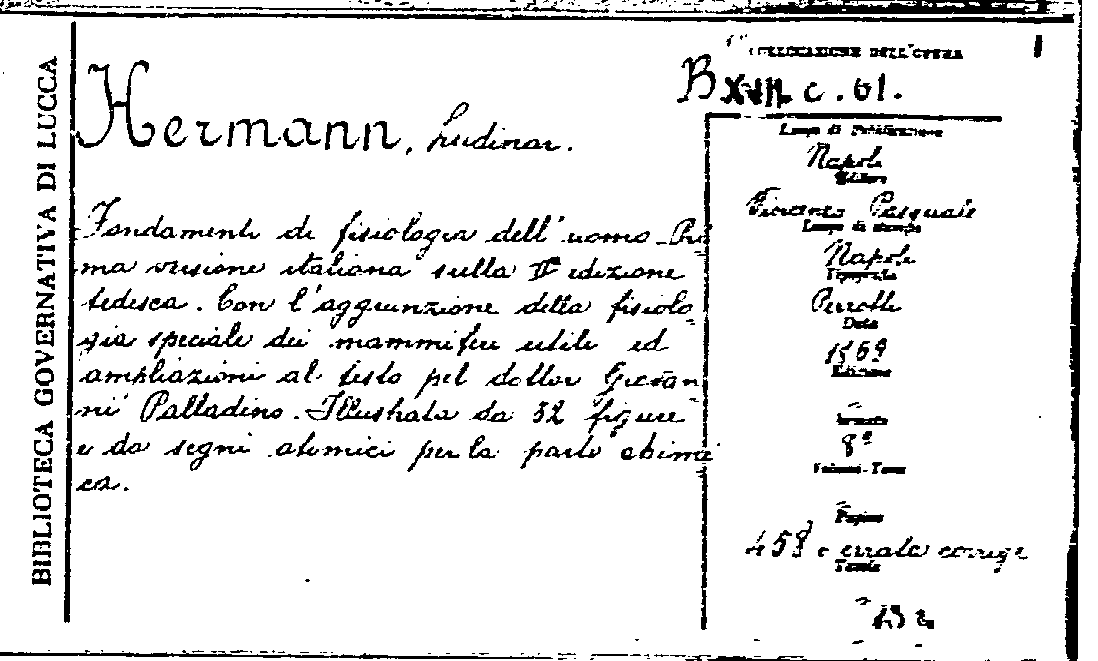 BIBLIOTECA GOVERNATIVA DI LUCCA
COLLOCAZIONE DELL'OPERA
B XVII. c. 61.
Hermann,
Fondamenti di fisiologia dell'uomo. Pri
ma versione italiana sulla IIª edizione
tedesca. Con l'aggiunzione della fisiolo
gia speciale dei mammiferi utili ed
ampliazioni al testo pel dottor Giovan
ni Palladino. Illustrata da 52 figure
e da segni atomici per la parte chimi
ca.
Luogo di Pubblicazione
Napoli
Editore
Pasquale
Luogo di stampa
Napoli
Tipografia
Perrotti
Data
1869
Edizione
Formato
8º
Volumi-Tomi
Pagine
458 e errata corrige
Tavole